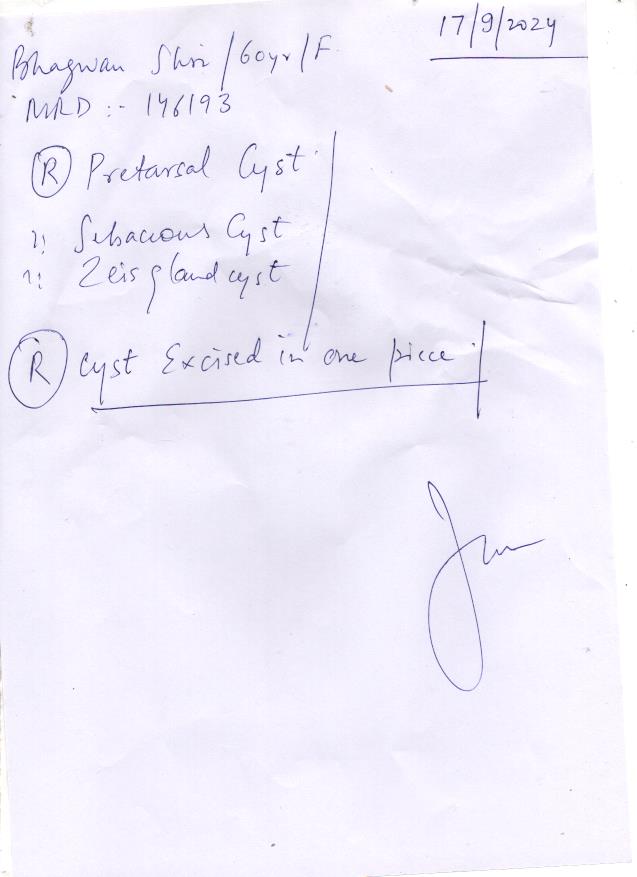 17/9/2024
Bhagwan Shri / 60yr / F
MRD :- 146193
(R) Pretarsal Cyst
?: Sebaceous Cyst
?: Zeis gland cyst
(R) Cyst Excised in one piece